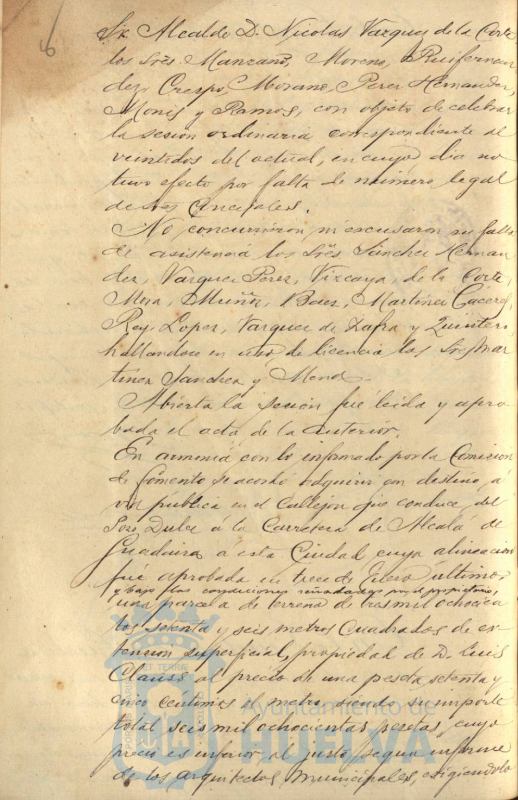 6
Sr. Alcalde D. Nicolas Vazquez de la Corte
los Sres. Manzano, Moreno, Ruifernan
dez, Crespo, Morano, Perez Hernandez,
Monis y Ramos, con objeto de celebrar
la sesion ordinaria correspondiente al
veintidos del actual, en cuyo dia no
tuvo efecto por falta de número legal
de Sres Concejales.
No concurrieron, ni excusaron su falta
de asistencia los Sres Sanchez Hernan
dez, Vazquez Perez, Vizcaya, de la Corte,
Mora, Muñoz, Baez, Martinez Caceres,
Rey, Lopez, Vazquez de Zafra y Quintero
hallandose en uso de licencia los Sres Mar
tinez Sanchez y Mend
Abierta la sesion fué leida y apro
bada el acta de la anterior.
En armonia con lo informado por la Comision
de Fomento se acordó adquirir con destino á
via publica en el Callejon que conduce del
Pozo Dulce a la Carretera de Alcalá de
Guadaira á esta Ciudad cuya alineacion
fué aprobada en trece de Enero último,
y bajo las condiciones reseñadas por el propietario,
una parcela de terreno de tres mil ochocien
tos setenta y seis metros cuadrados de ex
tension superficial, propiedad de D. Luis
Clauss al precio de una peseta setenta y
cinco centimos el metro siendo su importe
total seis mil ochocientas pesetas, cuyo
precio es inferior al justo, segun informe
de los arquitectos municipales, exigiendolo
Ayuntamiento de
HUELVA